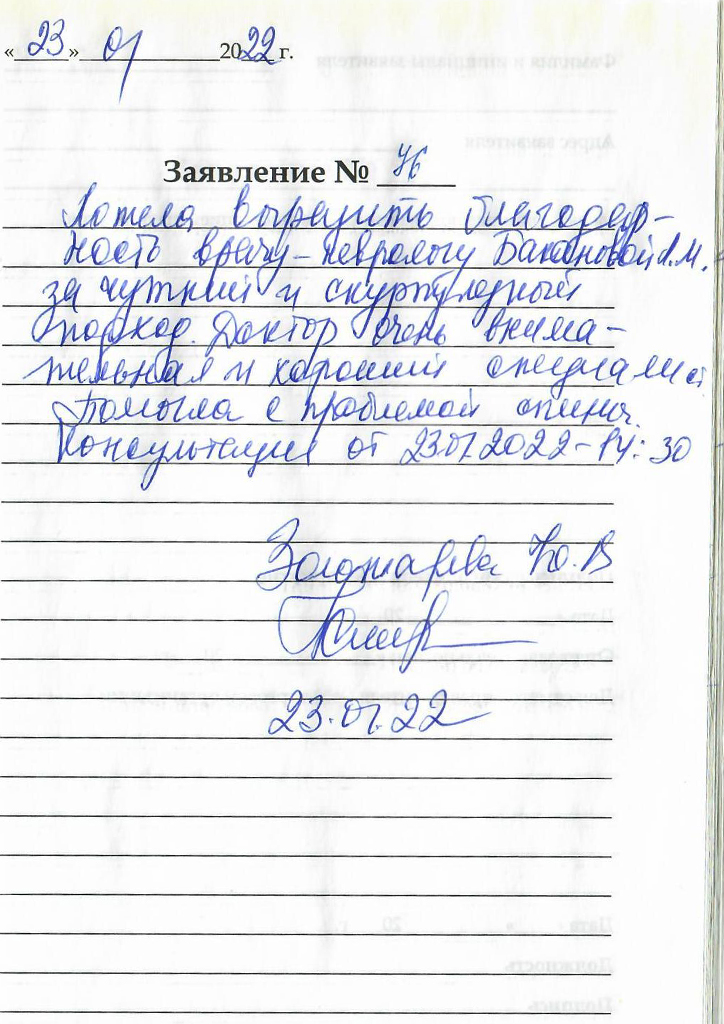 «23» 07 2022 г.
Заявление № 76
Хотела выразить благодар-
ность врачу-неврологу Л.М.
за чуткий и скурпулезный
подход. Доктор очень внима-
тельная и хороший специалист
Помогла с проблемой спины.
Консультация от 23.07.2022-14:30
Золотарева Ю.В
23.07.22